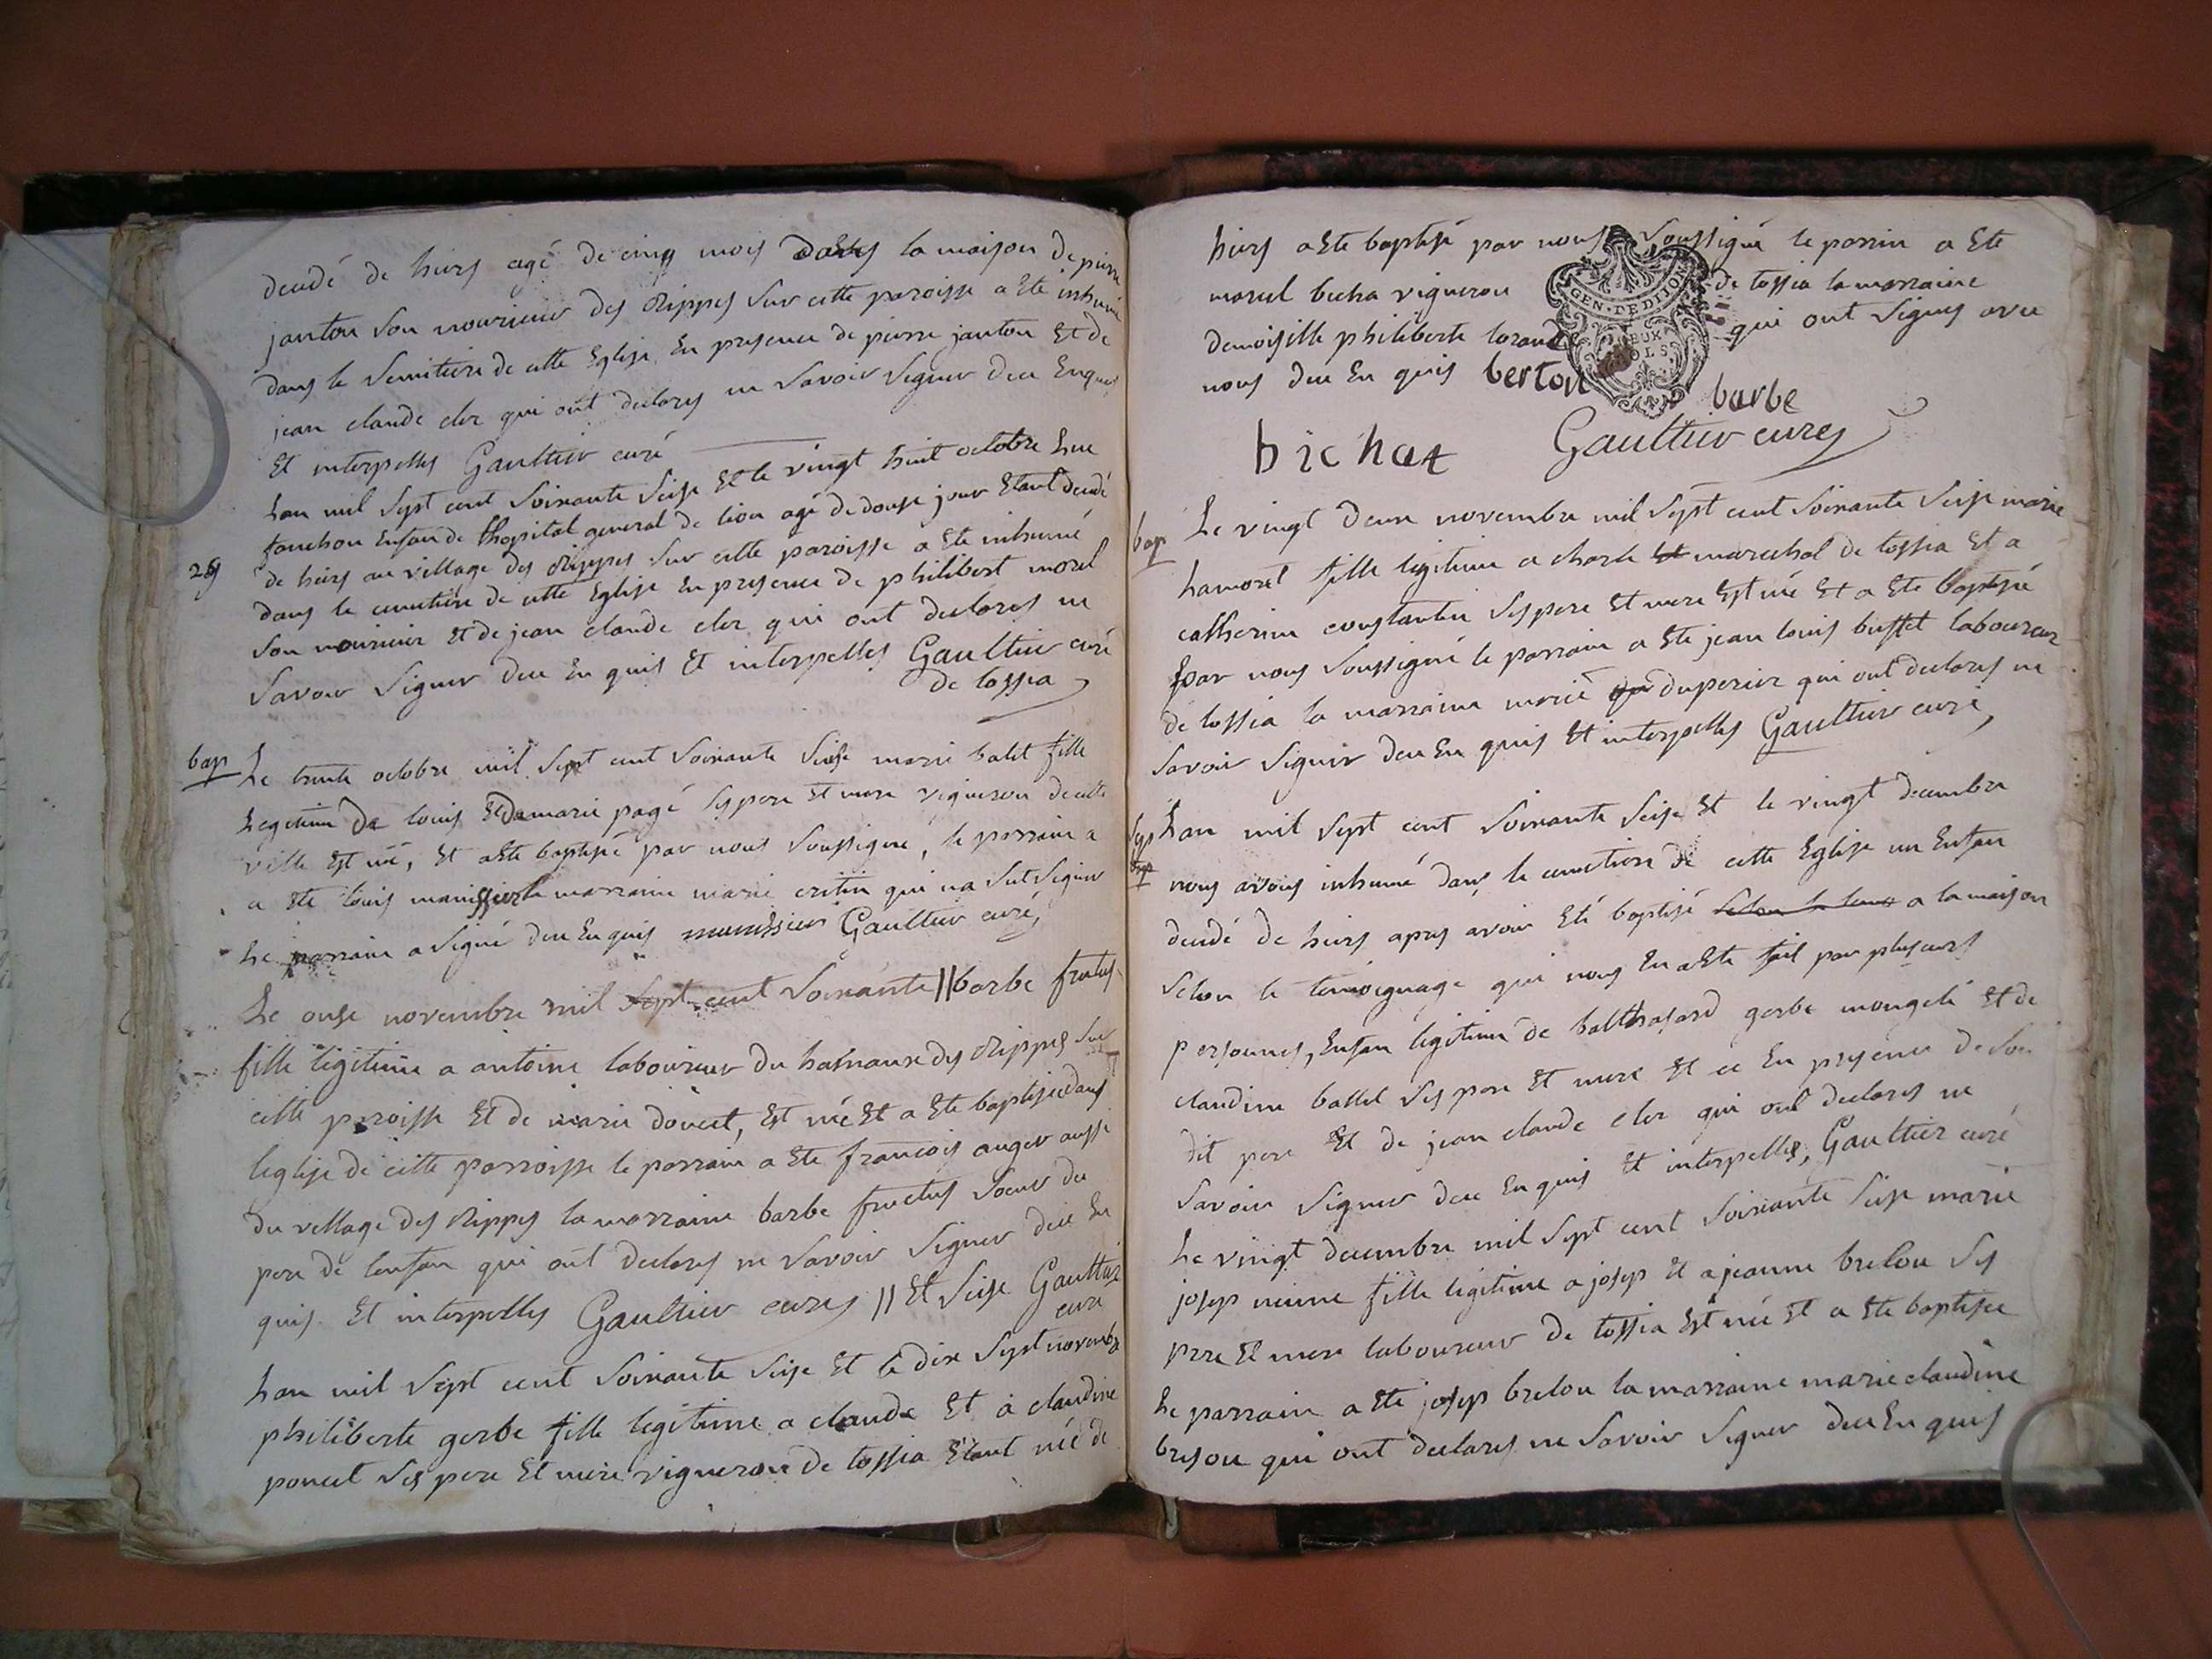 deudé de hiers agé de cinq mois dans la maison de pierre
janton son nourricier des Rippes sur cette paroisse a Ete inhumé
dans le semitiere de cette Eglise En presence de pierre janton Et de
jean claude cler qui ont declares ne savoir signer deu Enquis
Et interpelles Gaultier curé
Lan mil sept cent soixante seise Et le vingt huit octobre une
fanchon Enfan de lhopital general de lion agé de douse jour Etant deudé
28 de hiers au village des Rippes sur cette paroisse a Ete inhumé
dans le cemetiere de cette Eglise En presence de philibert morel
son nouricier Et de jean claude cler qui ont declares ne
savoir signer deu En quis Et interpelles Gaultier curé
de tossia
bap Le trente octobre mil sept cent soixante seise marie balet fille
Legitime De louis Et de marie pagé ses pere Et mere vigneron de cette
ville Est né, Et a Ete baptisée par nous soussigné, le parrain a
a Ete louis manissier la marraine marie critin qui na sut signer
Le parrain a signé deu En quis manissier Gaultier curé,
Le onse novembre mil sept cent soixante // barbe fructus
fille legitime a antoine laboureur du hamaux des Rippes sur
cette paroisse Et de marie donet, Est né Et a Ete baptisée dans
leglise de cette parroisse le parrain a Ete francois auger aussi
du village des Rippes la marraine barbe fructus soeur du
pere de lenfan qui ont declares ne savoir signer deu En
quis Et interpelles Gaultier cures // Et seise Gaultier
curé
Lan mil sept cent soixante seise Et le dix sept novembre
philiberte gerbe fille legitime a claude Et a claudine
poncet ses pere Et mere vigneron de tossia Etant née de
hiers a Ete baptisé par nous soussigné le parrin a Ete
marcel bucha vigneron de tossia la marraine
demoiselle philiberte lorand qui ont signes avec
nous deu En quis berton barbe
GEN. DE DIJON
DEUX
SOLS
bichat Gaultier cures
bap Le vingt deux novembre mil sept cent soixante seise marie
hamorel fille legitime a charle marechal de tossia Et a
catherine constantin ses pere Et mere Est né Et a Ete baptisée
par nous soussigné le parrain a Ete jean louis buffet laboureur
de tossia la marraine marie duperier qui ont declares ne
savoir signer deu En quis Et interpelles Gaultier curé,
sep Lan mil sept cent soixante seise Et le vingt decembre
nous avons inhumé dans le cemetiere de cette Eglise un Enfan
deudé de hiers apres avoir Eté baptisé a la maison
selon le temoignage qui nous En a Ete fait par plusieurs
personnes, Enfan legitime de balthasard gerbe mongelé Et de
claudine ballet ses pere Et mere Et ce En presence de son
dit pere Et de jean claude cler qui ont declares ne
savoir signer deu En quis Et interpelles, Gaultier curé
Le vingt decembre mil sept cent soixante seise marie
josep nienne fille legitime a josep Et a jeanne brelou ses
pere Et mere laboureur de tossia Est née Et a Ete baptisée
Le parrain a Ete josep brelou la marraine marie claudine
bresou qui ont declares ne savoir signer deu En quis